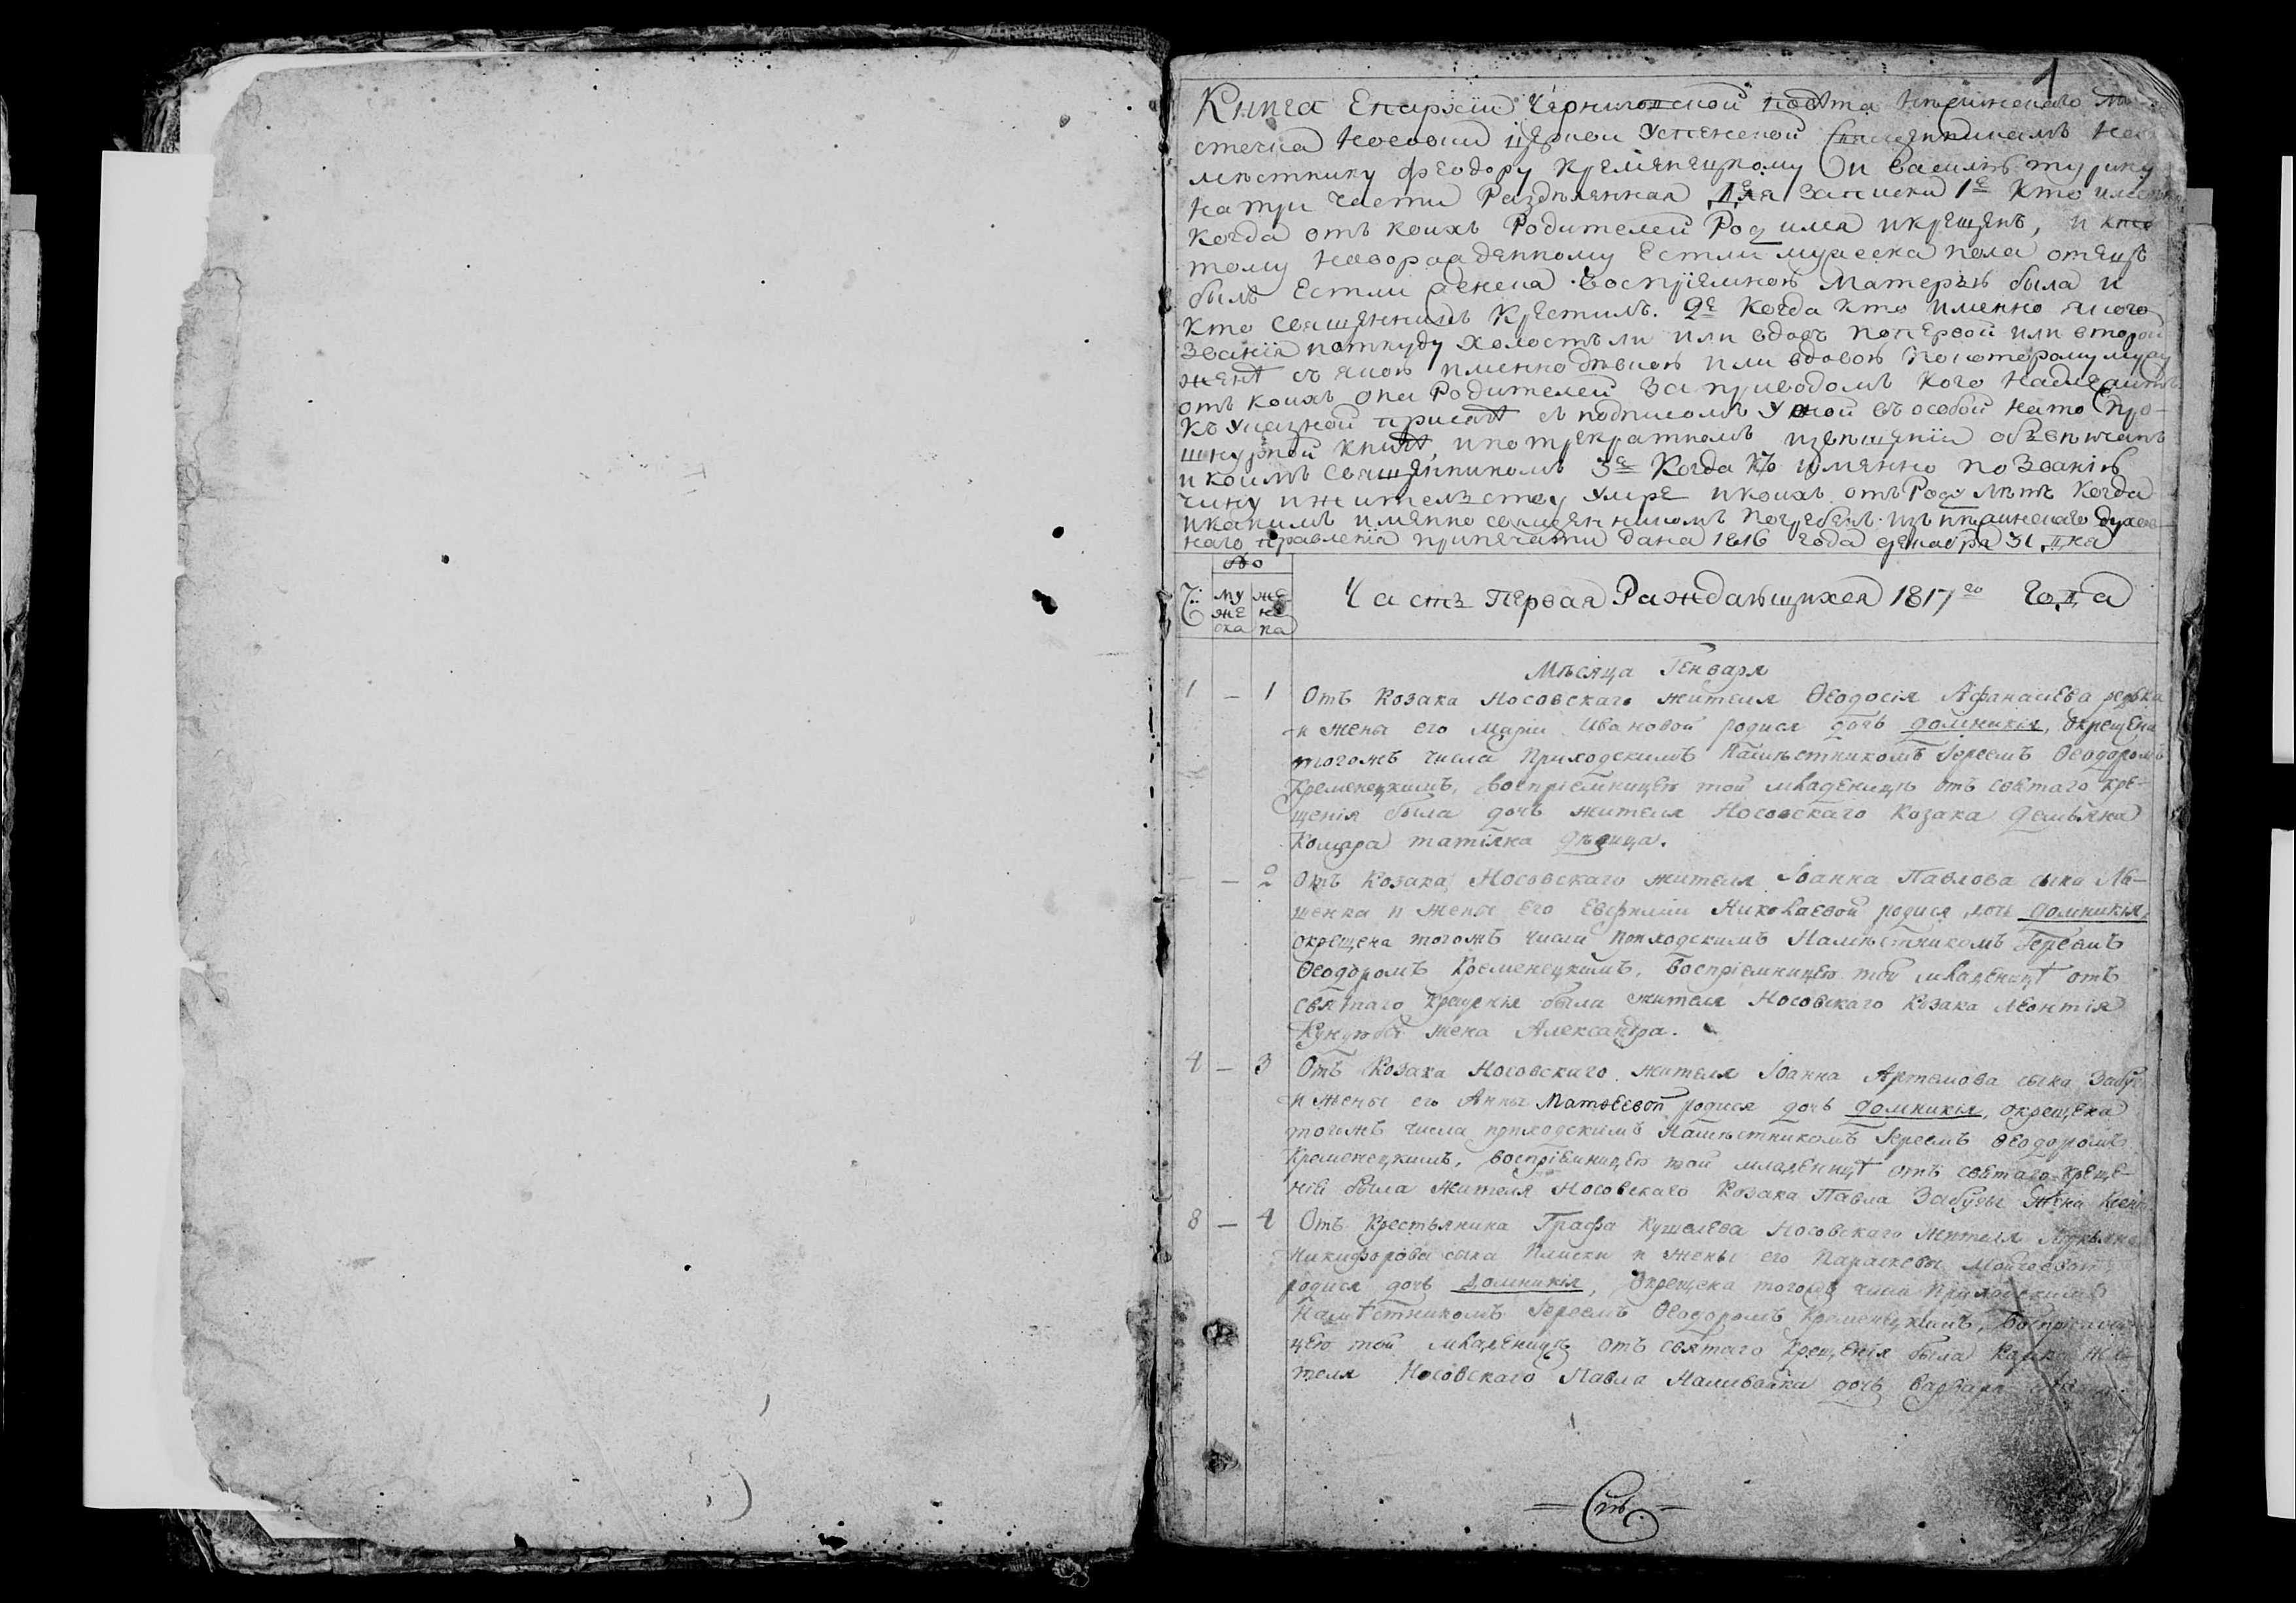 1
Книга Епархіи Черниговской повѣта Нѣжинскаго мѣ-
стечка Носовки церкви Успенской Священникамъ На-
мѣстнику Феодору Кременецкому и Василію Турину
на три части Раздѣленная Для Записки 1е Кто имянно
Когда отъ коихъ Родителей Родился и крещенъ, и кто
тому новорожденному Естли мужеска пола отецъ
былъ Естли женска воспріемною Матерью была и
кто священникъ Крестилъ. 2е Когда кто именно якого
званія и откуду холостъ ли или вдовъ по первой или второй
женѣ съ якою именно дѣвкою или вдовою по которому мужу
отъ коихъ она Родителей За приводомъ кого надлежитъ
къ указной присягѣ съ подписомъ у оной въ особой на то про-
шнурной книгѣ, и по трекратномъ извѣщеніи обвѣнчанъ
и коимъ священникомъ 3е Когда кто имянно по званію
чину и жительству умре и коихъ отъ Роду лѣтъ когда
и какимъ имянно священникомъ погребенъ. изъ Нѣжинскаго духов-
наго правленія при печати дана 1816 года декабря 31 дня
Число
му же
же нс
ска ка
Часть Первая Раждающихся 1817го Года
Мѣсяца Генваря
1 — 1 Отъ Козака Носовскаго жителя Ѳеодосія Афанасіева редька
и жены его Маріи Ивановой родися дочь Домникія, окрещена
тогожъ числа Приходскимъ Намѣстникомъ Іереемъ Ѳеодоромъ
Кременецкимъ, воспріемницею той младеницѣ отъ святаго кре-
щенія была дочь жителя Носовскаго Козака Демьяна
Комара татіяна дѣвица.
— 2 Отъ Козака Носовскаго жителя Іоанна Павлова сына
и жены его Евфиміи Николаевой родися дочь Домникія,
окрещена тогожъ числа приходскимъ Намѣстникомъ Іереемъ
Ѳеодоромъ Кременецкимъ, воспріемницею той младеницѣ отъ
святаго крещенія была жителя Носовскаго Козака Леонтія
жена Александра.
4 — 3 Отъ Козака Носовскаго жителя Іоанна Артемова сына
и жены его Анны Матѳеевой родися дочь Домникія, окрещена
тогожъ числа приходскимъ Намѣстникомъ Іереемъ Ѳеодоромъ
Кременецкимъ, воспріемницею той младеницѣ отъ святаго креще-
нія была жителя Носовскаго Козака Павла Забуды жена
8 — 4 Отъ Крестьянина Графа Кушелева Носовскаго жителя
Никифорова сына и жены его Параскевы
родися дочь Домникія, Окрещена тогожъ числа Приходскимъ
Намѣстникомъ Іереемъ Ѳеодоромъ Кременецкимъ, Воспріемни-
цею той младеницѣ отъ святаго Крещенія была жи-
теля Носовскаго Павла Наливайка дочь Варвара